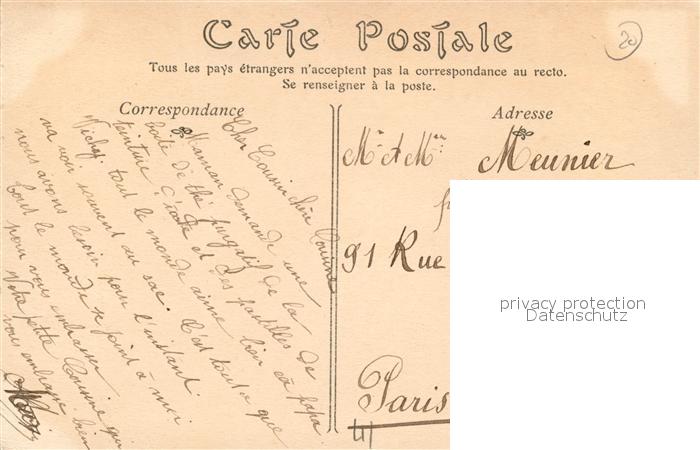 Carte Postale
Tous les pays étrangers n'acceptent pas la correspondance au recto.
Se renseigner à la poste.
20
Correspondance
Cher Cousin chère Cousine
Maman demande une
boîte de thé purgatif de la
teinture d'iode et des pastilles de
Vichy tout le monde aime bien et papa
va voir souvent au sac. C'est tout ce que
nous avons besoin pour l'instant
tout le monde se joint à moi
pour vous embrasser
Votre petite Cousine qui
vous embrasse bien
Adresse
Mr et Mme Meunier
91 Rue
Paris
privacy protection
Datenschutz